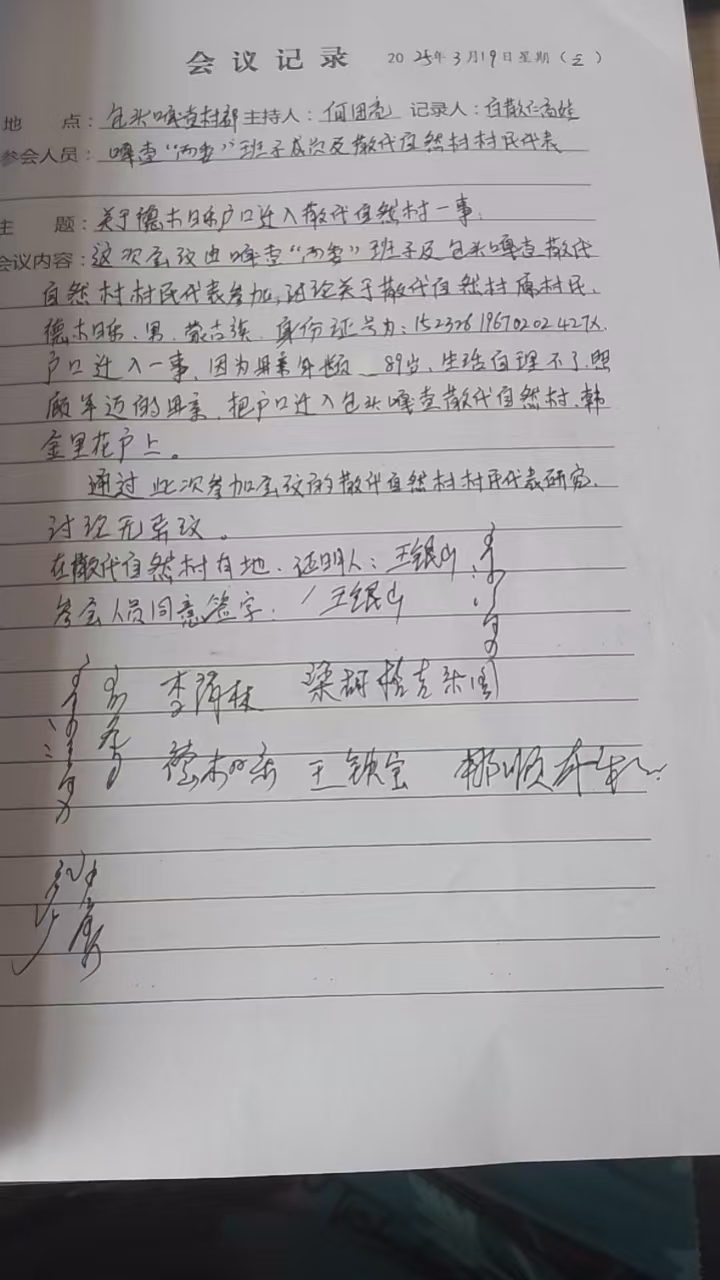 会议记录 2025年3月19日星期(三)
地 点:包头嘎查村部 主持人:何团亮 记录人:白散仁高娃
参会人员:嘎查“两委”班子成员及散代自然村村民代表
主 题:关于德木日乐户口迁入散代自然村一事.
会议内容:这次会议由嘎查“两委”班子及包头嘎查散代
自然村村民代表参加,讨论关于散代自然村原村民、
德木日乐、男、蒙古族、身份证号为:15232619670202427X.
户口迁入一事、因为母亲年龄 89岁、生活自理不了、照
顾年迈的母亲、把户口迁入包头嘎查散代自然村、韩
金里花户上。
通过此次参加会议的散代自然村村民代表研究、
讨论无异议。
在散代自然村有地、证明人:王银山
参会人员同意签字:王银山
梁胡格吉乐图
德木日乐 王铁宝